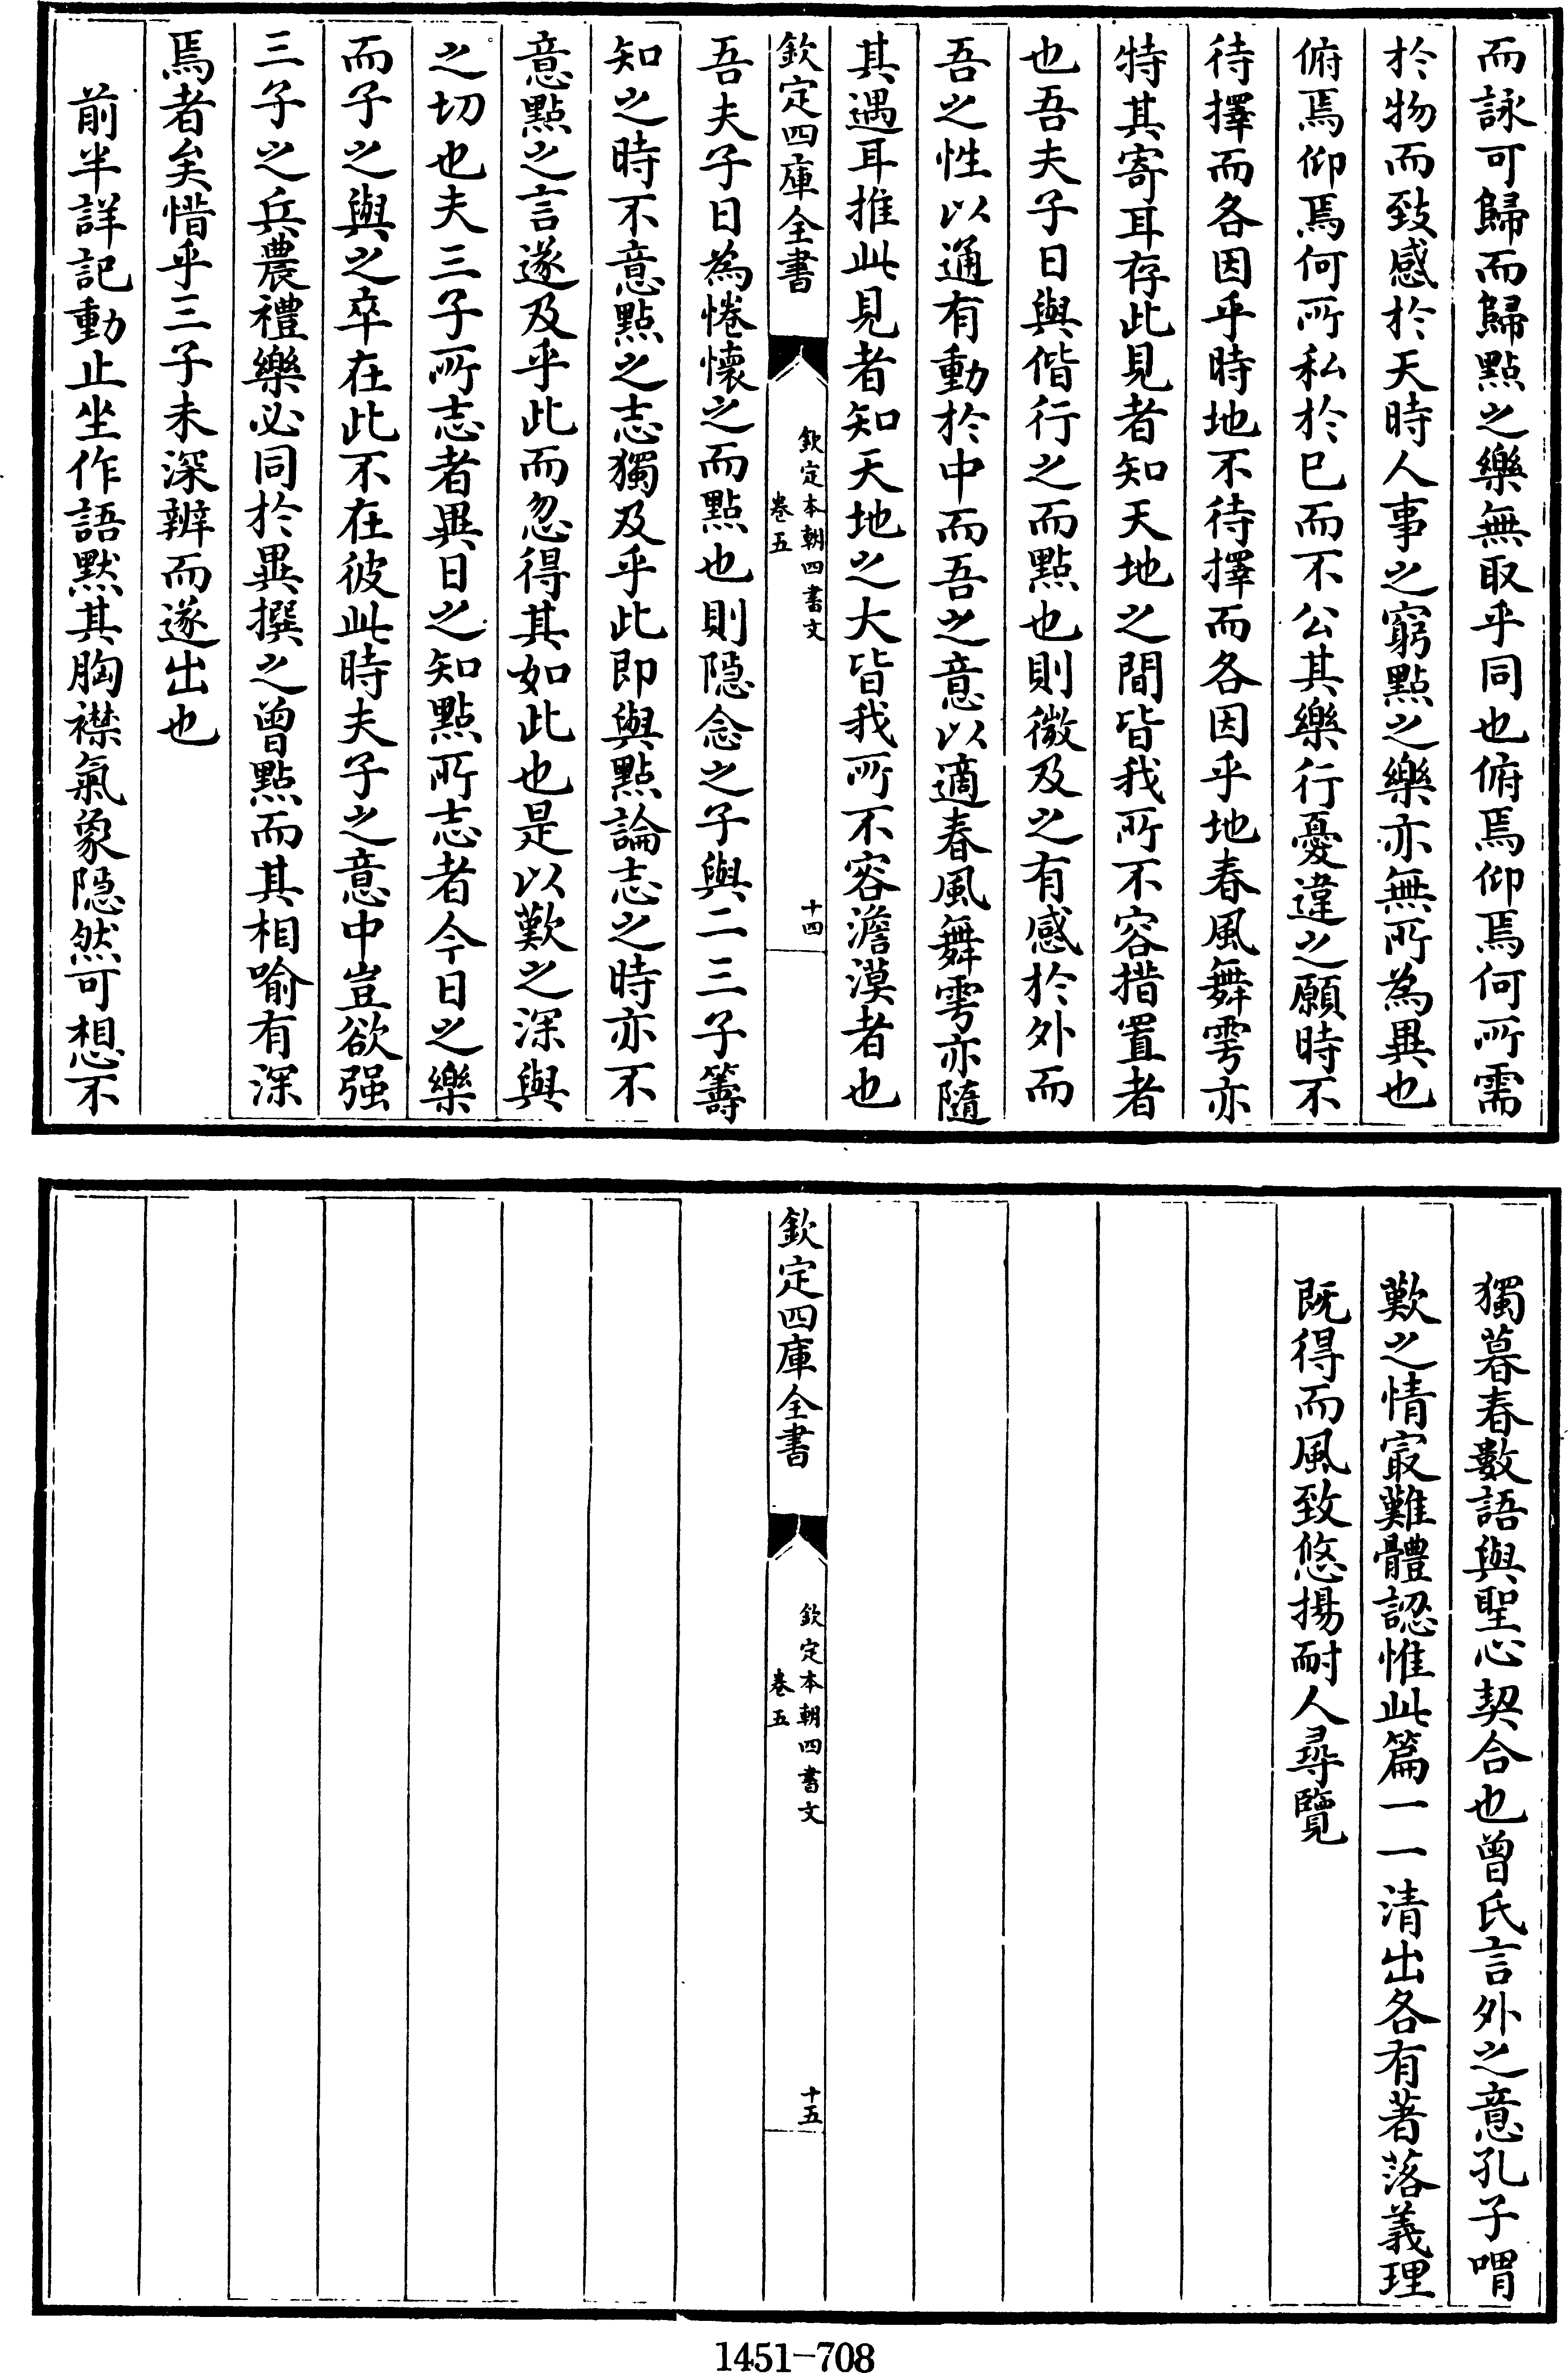 而詠可歸而歸點之樂無取乎同也俯焉仰焉何所需
於物而致感於天時人事之窮點之樂亦無所為異也
俯焉仰焉何所私於已而不公其樂行憂違之願時不
待擇而各因乎時地不待擇而各因乎地春風舞雩亦
特其寄耳存此見者知天地之間皆我所不容措置者
也吾夫子日與偕行之而點也則微及之有感於外而
吾之性以通有動於中而吾之意以適春風舞雩亦隨
其遇耳推此見者知天地之大皆我所不容澹漠者也
欽定四庫全書
欽定本朝四書文
卷五
十四
吾夫子日為惓懷之而點也則隠念之子與二三子籌
知之時不意點之志獨及乎此即與點論志之時亦不
意點之言遂及乎此而忽得其如此也是以歎之深與
之切也夫三子所志者異日之知點所志者今日之樂
而子之與之卒在此不在彼此時夫子之意中豈欲强
三子之兵農禮樂必同於異撰之曾點而其相喻有深
焉者矣惜乎三子未深辨而遂出也
前半詳記動止坐作語默其胸襟氣象隠然可想不
獨暮春數語與聖心契合也曾氏言外之意孔子喟
歎之情㝡難體認惟此篇一一清出各有著落義理
既得而風致悠揚耐人尋覽
欽定四庫全書
欽定本朝四書文
卷五
十五
1451-708